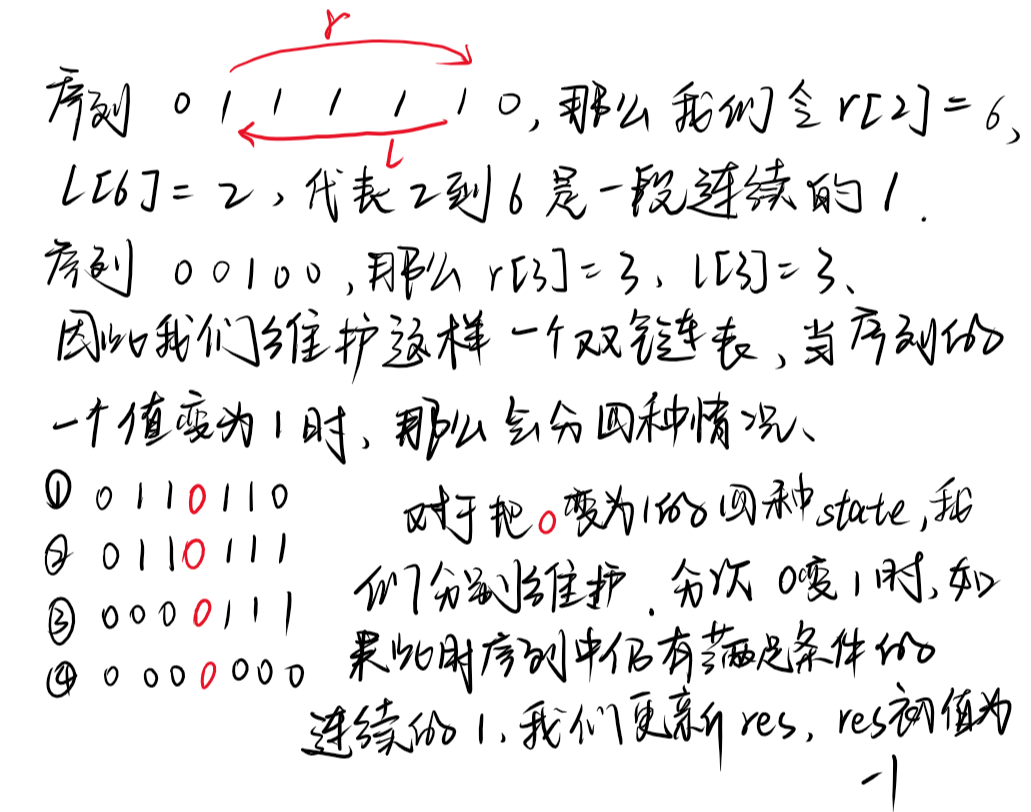 r
序列 0 1 1 1 1 1 0, 那么我们令 r[2]=6,
l
l[6]=2, 代表2到6是一段连续的1.
序列 00100, 那么 r[3]=3, l[3]=3、
因此我们维护这样一个双链表, 当序列的
一个值变为1时, 那么会分四种情况、
① 0 1 1 0 1 1 0
② 0 1 1 0 1 1 1
③ 0 0 0 0 1 1 1
④ 0 0 0 0 0 0 0
对于把0变为1的四种state, 我
们分别维护. 分次 0变1时, 如
果此时序列中仍有满足条件的
连续的1, 我们更新res, res初值为
-1